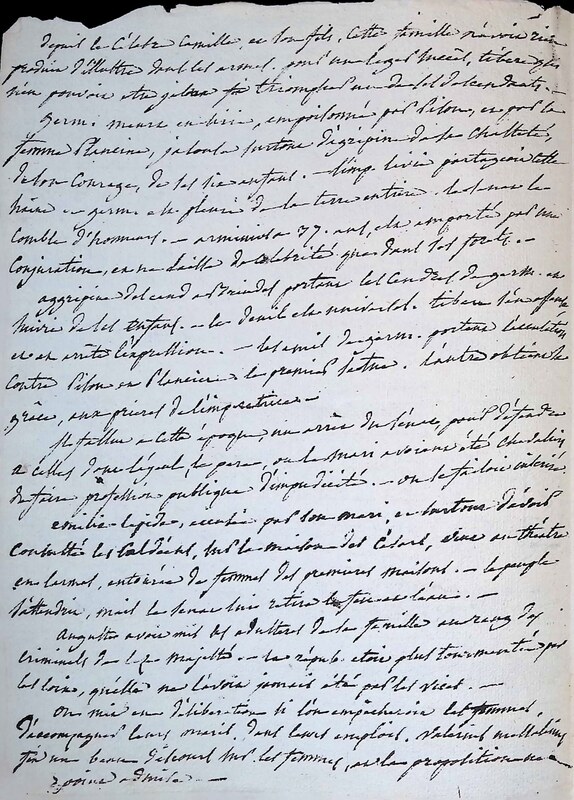 depuis le célèbre Camille, et son fils, cette famille n'avoit rien
produit d'illustre dans les armes. pour un léger succès, tibere
rien pouvoir etre fit triompher un de ses descendants. —
germ. meurt en sirie, empoisonné par Pison, et par sa
femme Plancine, jalouse surtout d'agripine de sa chasteté,
de son courage, de ses six enfans. — l'imp. livie partageoit cette
haine. — germ. est pleuré de la terre entiere. les
comble d'honneurs. — arminius a 37. ans, est emporté par une
conjuration, et sa de célébrité que dans ses forêts. —
aggripine descend a Brindes portant les cendres de germ. et
suivie de ses enfans. — le deuil est universel. tibere s'en offense
et en arrête l'expression. — les amis de germ. portent l'accusation
contre Pison et Plancine le premier se tue. l'autre obtient sa
grâce, aux prieres de l'impératrice. —
Il fallut a cette époque, un arrêt du sénat, pour défendre
a celles dont l'ayeul, le pere, ou le mari avoient été chevaliers
de faire profession publique d'impudicité. — on le faisoit
emilie lepide, accusée par son mari, et surtout d'avoir
consulté les caldéens, sur la maison des Césars, vient au théatre
en larmes, entourée de femmes des premieres maisons. — le peuple
s'attendrit, mais le senat lui retire le feu et l'eau. —
Auguste avoit mis les adulteres de sa famille au rang des
criminels de leze majesté. — la répub. etoit plus tourmentée par
les loix, qu'elle ne l'avoit jamais été par les vices. —
On mit en délibération si l'on empecheroit les femmes,
d'accompagner leurs maris, dans leurs emplois. Valerius messalinus
fit un beau discours sur les femmes, et la proposition ne
point admise. —